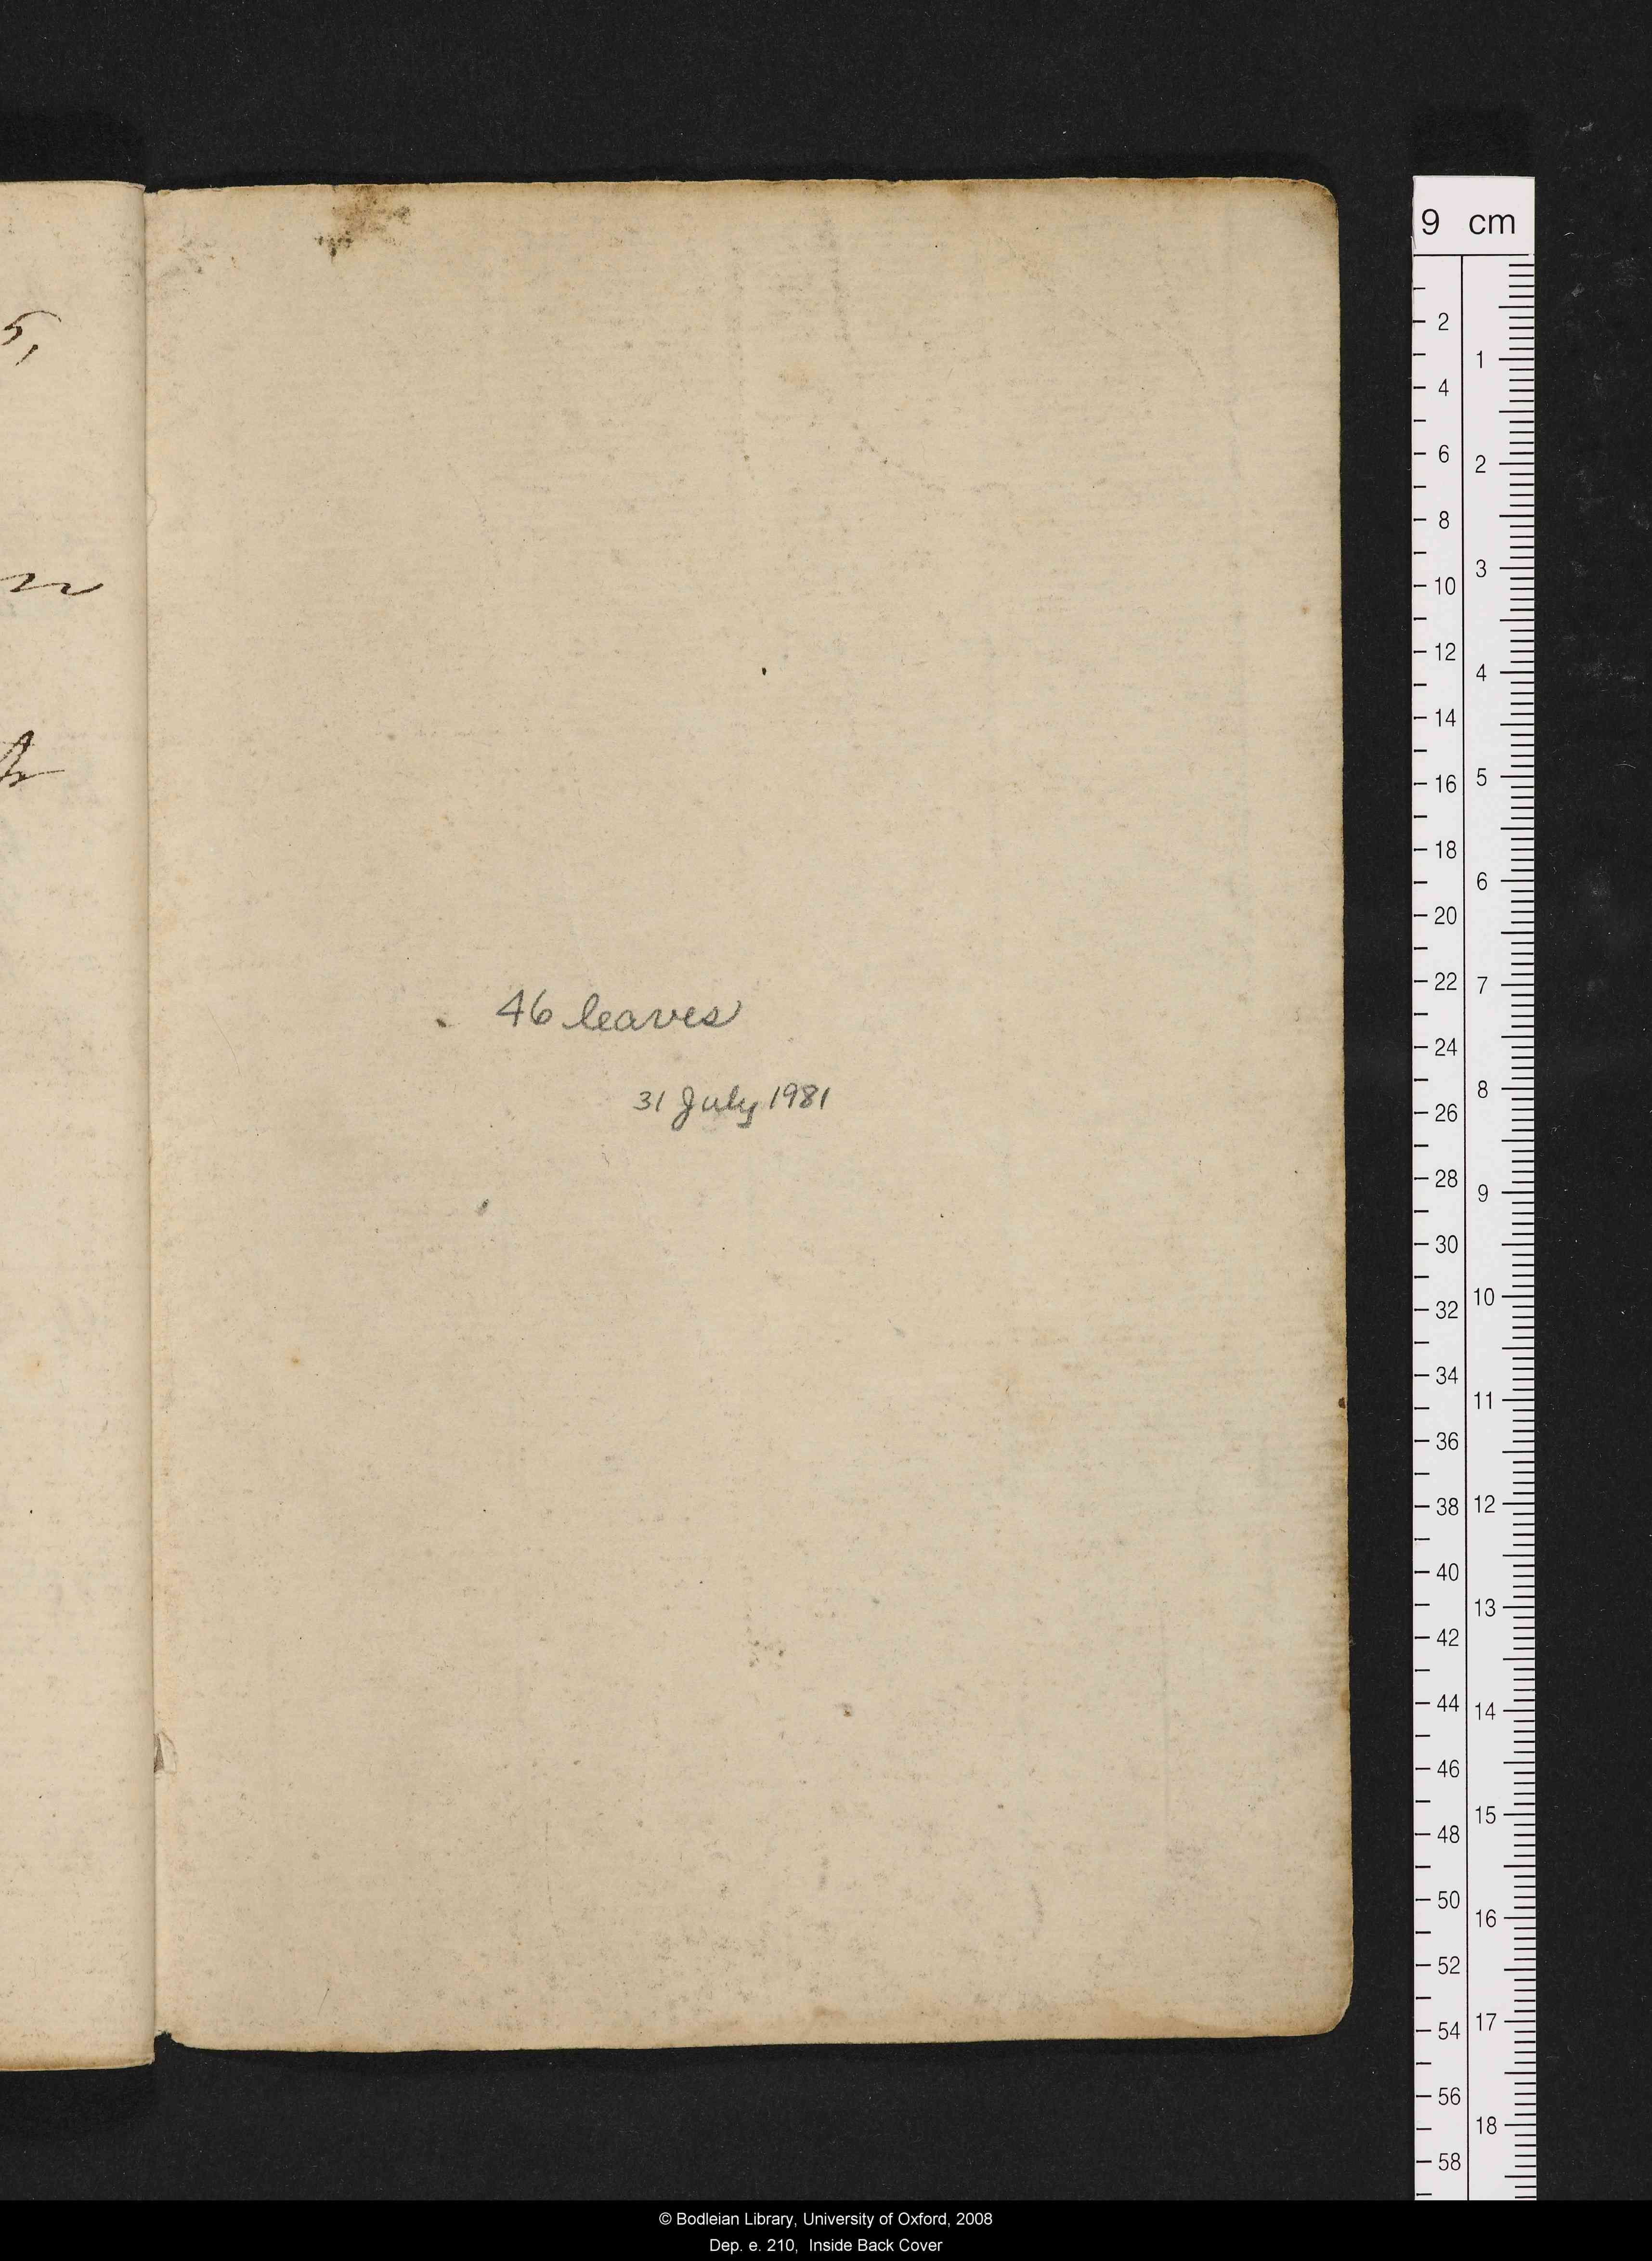 5,
46 leaves
31 July 1981
9 cm
2
4
6
8
10
12
14
16
18
20
22
24
26
28
30
32
34
36
38
40
42
44
46
48
50
52
54
56
58
1
2
3
4
5
6
7
8
9
10
11
12
13
14
15
16
17
18
© Bodleian Library, University of Oxford, 2008
Dep. e. 210, Inside Back Cover